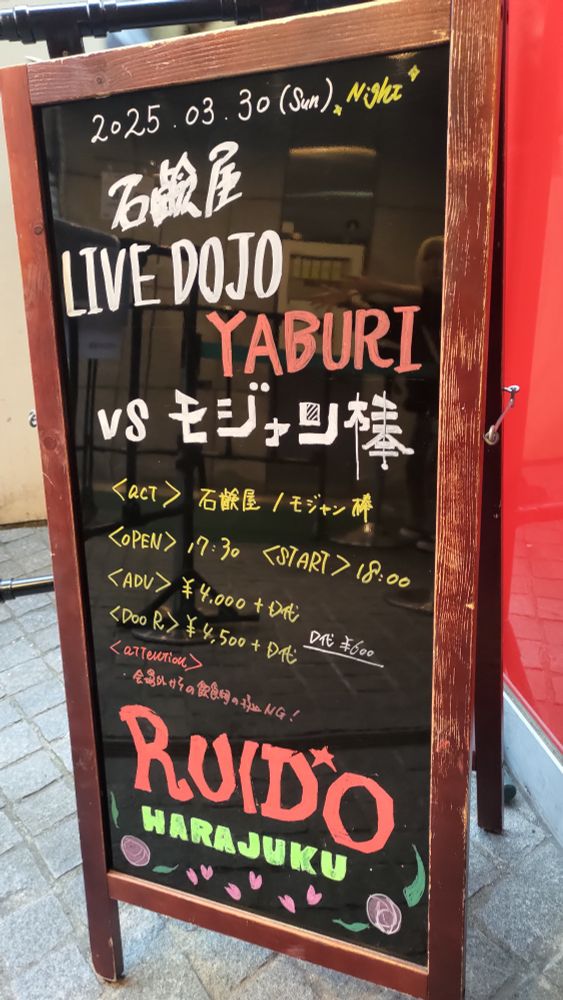 2025.03.30 (Sun) Night
石鹸屋
LIVE DOJO
YABURI
VS モジャン棒
<act> 石鹸屋 / モジャン棒
<OPEN> 17:30 <START> 18:00
<ADV> ¥4,000 + D代
<DooR> ¥4,500 + D代 D代 ¥600
<attention>
・会場外からの飲食物の持込NG!
RUIDO
HARAJUKU